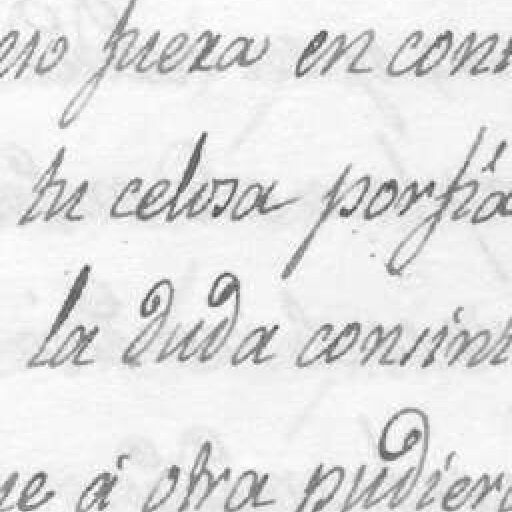 ero fuera en cont
tu celosa porfia
la duda consint
ue á otra pudiera